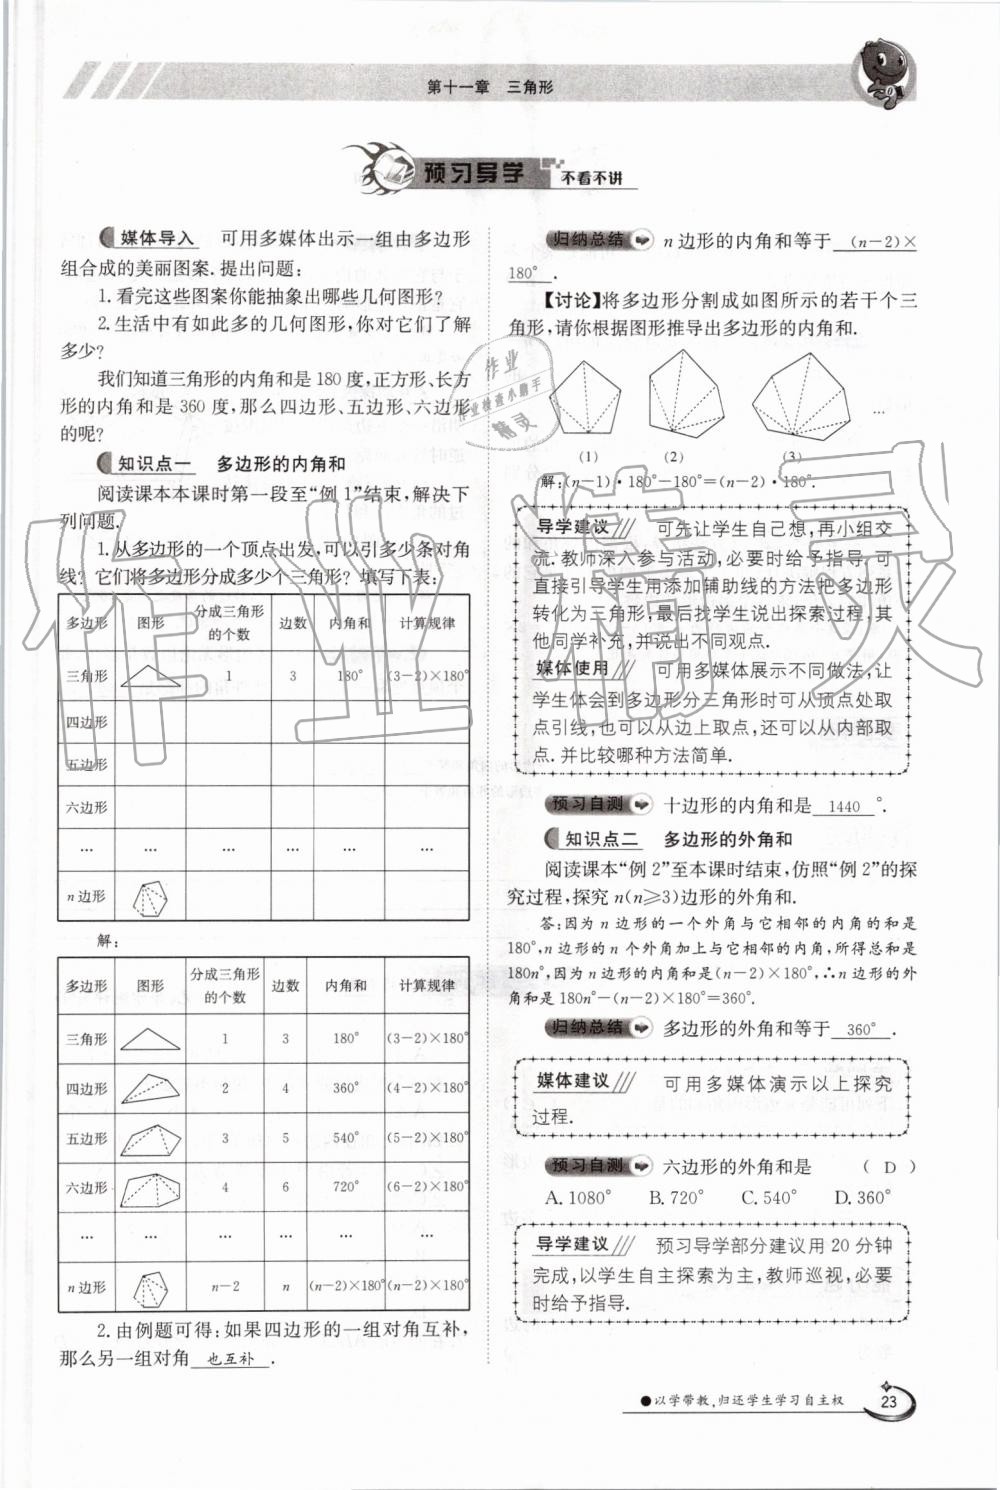 第十一章　三角形
预习导学　不看不讲
媒体导入　可用多媒体出示一组由多边形
组合成的美丽图案.提出问题:
1.看完这些图案你能抽象出哪些几何图形?
2.生活中有如此多的几何图形,你对它们了解
多少?
我们知道三角形的内角和是180度,正方形、长方
形的内角和是360度,那么四边形、五边形、六边形
的呢?
知识点一　多边形的内角和
阅读课本本课时第一段至“例1”结束,解决下
列问题.
1.从多边形的一个顶点出发,可以引多少条对角
线? 它们将多边形分成多少个三角形? 填写下表:
多边形　图形　分成三角形的个数　边数　内角和　计算规律
三角形　1　3　180°　(3-2)×180°
四边形
五边形
六边形
…　…　…　…　…　…
n边形
解:
多边形　图形　分成三角形的个数　边数　内角和　计算规律
三角形　1　3　180°　(3-2)×180°
四边形　2　4　360°　(4-2)×180°
五边形　3　5　540°　(5-2)×180°
六边形　4　6　720°　(6-2)×180°
…　…　…　…　…　…
n边形　n-2　n　(n-2)×180°　(n-2)×180°
2.由例题可得:如果四边形的一组对角互补,
那么另一组对角 也互补 .
归纳总结　n边形的内角和等于 (n-2)×
180° .
【讨论】将多边形分割成如图所示的若干个三
角形,请你根据图形推导出多边形的内角和.
…
(1)　(2)　(3)
解:(n-1)·180°-180°=(n-2)·180°.
导学建议　可先让学生自己想,再小组交
流.教师深入参与活动,必要时给予指导.可
直接引导学生用添加辅助线的方法把多边形
转化为三角形,最后找学生说出探索过程,其
他同学补充,并说出不同观点.
媒体使用　可用多媒体展示不同做法,让
学生体会到多边形分三角形时可从顶点处取
点引线,也可以从边上取点,还可以从内部取
点.并比较哪种方法简单.
预习自测　十边形的内角和是 1440 °.
知识点二　多边形的外角和
阅读课本“例2”至本课时结束,仿照“例2”的探
究过程,探究n(n≥3)边形的外角和.
答:因为n边形的一个外角与它相邻的内角的和是
180°,n边形的n个外角加上与它相邻的内角,所得总和是
180n°,因为n边形的内角和是(n-2)×180°,∴n边形的外
角和是180n°-(n-2)×180°=360°.
归纳总结　多边形的外角和等于 360° .
媒体建议　可用多媒体演示以上探究
过程.
预习自测　六边形的外角和是　( D )
A.1080°　B.720°　C.540°　D.360°
导学建议　预习导学部分建议用20分钟
完成,以学生自主探索为主,教师巡视,必要
时给予指导.
●以学带教,归还学生学习自主权　23
作业
作业检查小助手
精灵
作业精灵